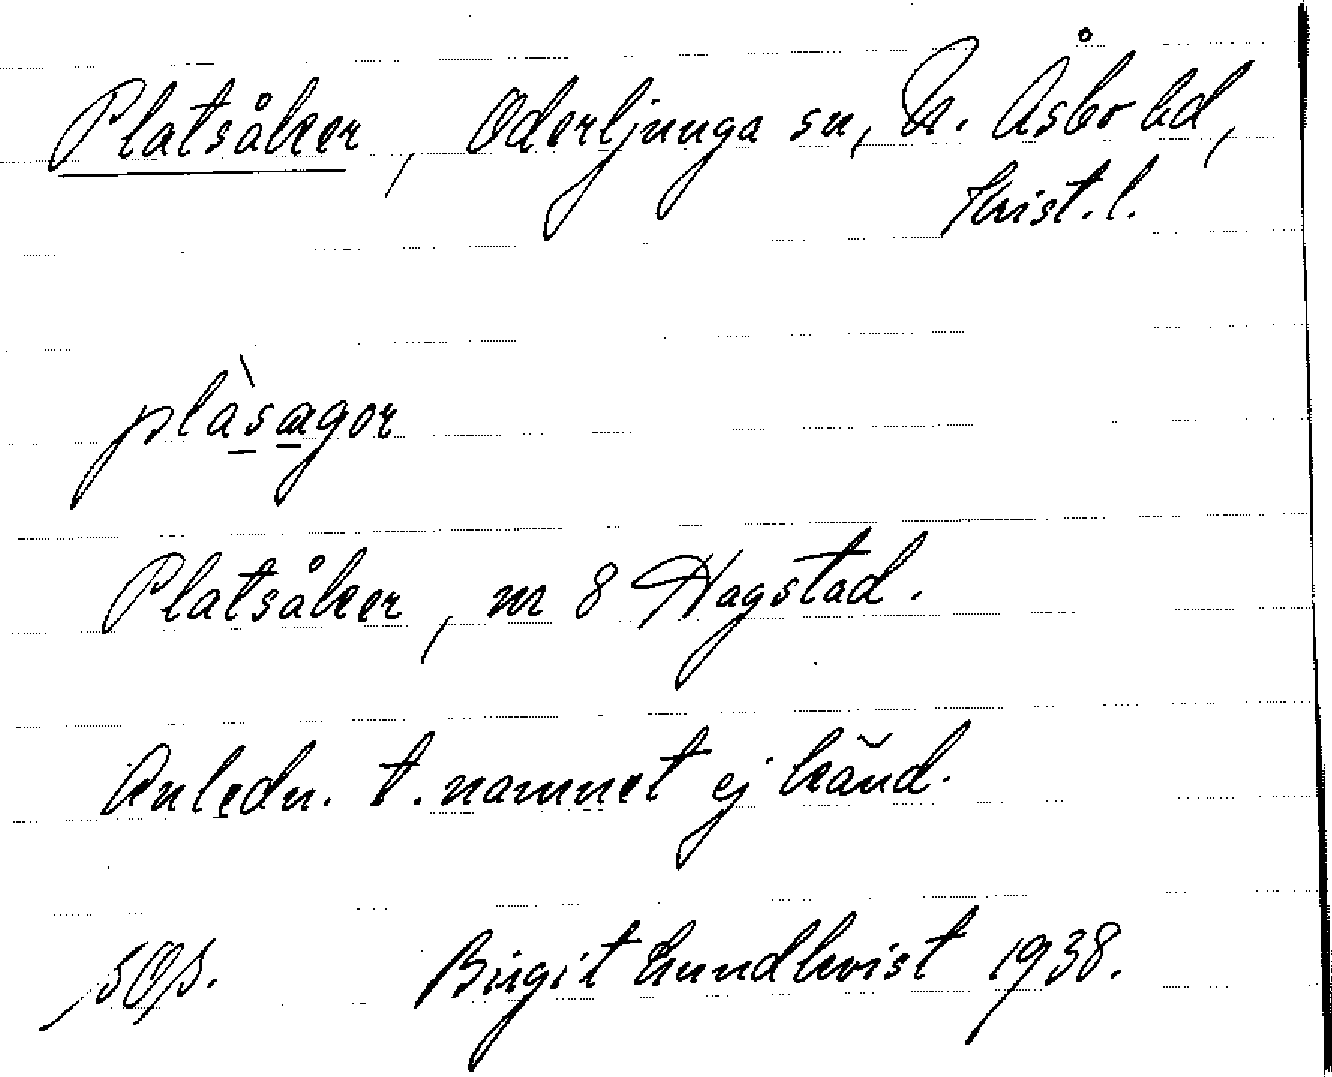 Platsåker, Oderljunga sn, N. Åsbo hd,
Krist. l.
plàsagor
Platsåker, nr 8 Hagstad.
Anledn. t. namnet ej känd.
Birgit Lundkvist 1938.